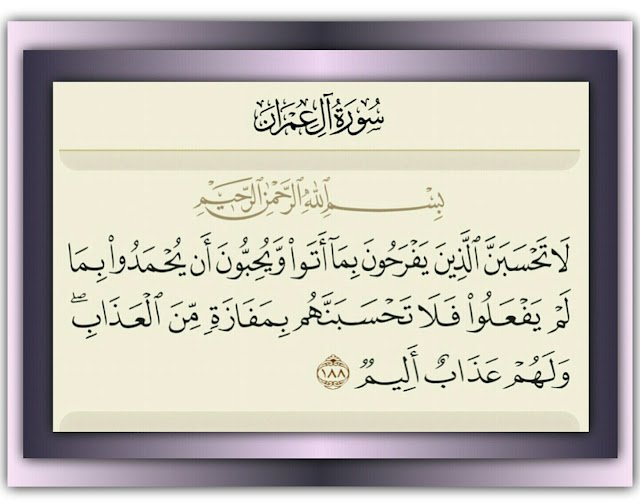 سُورَةُ آلِ عِمۡرَانَ
بِسۡمِ ٱللَّهِ ٱلرَّحۡمَٰنِ ٱلرَّحِيمِ
لَا تَحۡسَبَنَّ ٱلَّذِينَ يَفۡرَحُونَ بِمَآ أَتَواْ وَّيُحِبُّونَ أَن يُحۡمَدُواْ بِمَا
لَمۡ يَفۡعَلُواْ فَلَا تَحۡسَبَنَّهُم بِمَفَازَةٖ مِّنَ ٱلۡعَذَابِۖ
وَلَهُمۡ عَذَابٌ أَلِيمٞ ١٨٨